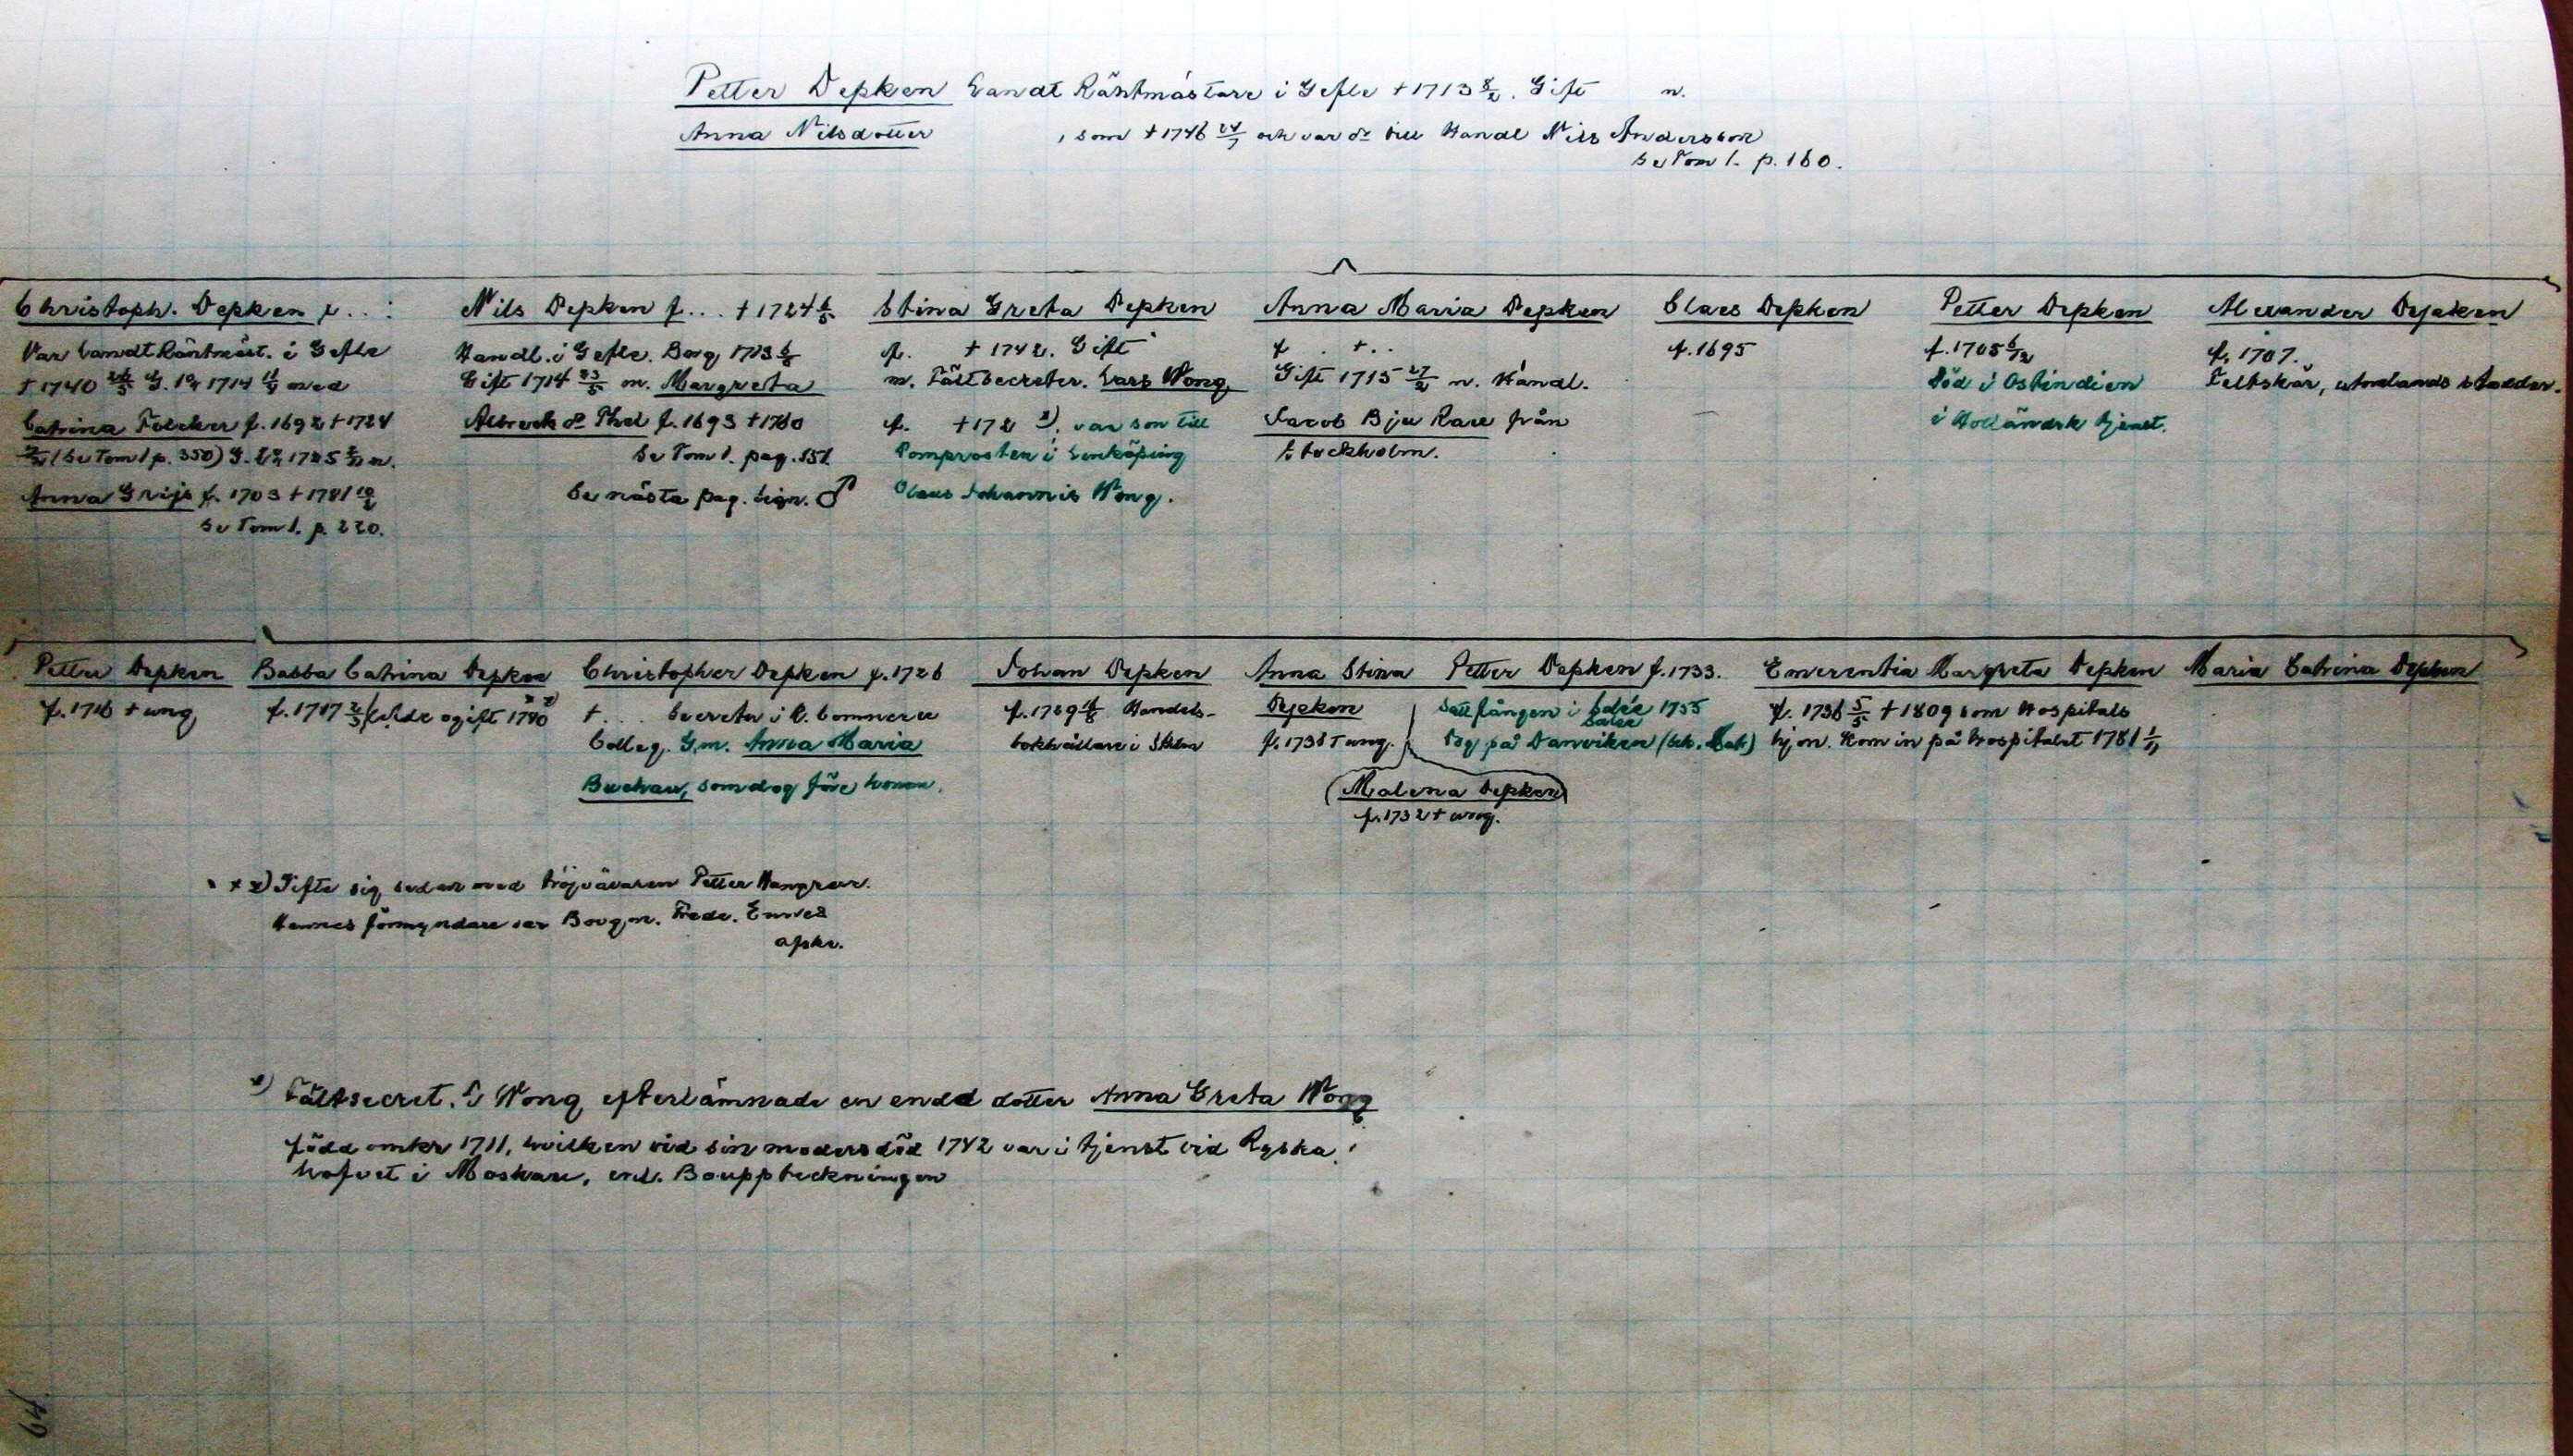 Petter Depken Landt Räntmästare i Gefle †1713 8/2. Gift m.
Anna Nilsdotter, som †1746 24/7 och var dr till Handl Nils Andersson
se Tom 1. p. 160.
Christoph. Depken f...
Var Landt Räntmäst. i Gefle
†1740 26/5 G. 1o 1714 med
Catrina Folcker f. 1692 †1724
(se Tom 1 p. 350) G. 2o 1725 m.
Anna Grijs f. 1703 †1781
se Tom 1. p. 220.
Nils Depken f... †1724 6/5
Handl. i Gefle. Borg 1713
Gift 1714 23/5 m. Margreta
Albrecht dr Thel f. 1693 †1760
se Tom 1. pag. 151.
se nästa pag. sign. ♂
Stina Greta Depken
f. †1742. Gift
m. Fältsecreter. Lars Wong,
f. †172 x). var son till
Domprosten i Linköping
Olaus Johannis Wong.
Anna Maria Depken
f . †..
Gift 1715 27/2 m. Handl.
Jacob Bju Rare från
Stockholm.
Claes Depken
f. 1695
Petter Depken
f. 1705 6/12
Död i Ostindien
i Holländsk tjenst.
Alexander Depken
f. 1707.
Feltskär, utomlands stadder.
Petter Depken
f. 1716 † ung
Babba Catrina Depken
f. 1717 ogift 1740 x x)
Christopher Depken f. 1726
†... Secreter i C. Commerce
Colleg. G. m. Anna Maria
Buchau, som dog före honom.
Johan Depken
f. 1729 Handels-
bokhållare i Sthlm
Anna Stina
Depken
f. 1731 † ung.
(Malena Depken)
f. 1732 † ung.
Petter Depken f. 1733.
Satt fången i Salée 1755
Salee
Dog på Danviken
Emerentia Margreta Depken
f. 1736 5/5 †1809 som Hospitals
hjon. Kom in på Hospitalet 1781
Maria Catrina Depken
x x) Gifte sig sedan med tröjvävaren Petter
Hennes förmyndare var Borgm. Fredr.
x) Fältsecret. L Wong efterlämnade en endd dotter Anna Greta Wong
född omkr 1711, hvilken vid sin moders död 1742 var i tjenst vid Ryska
hofvet i Moskau, enl. Bouppteckningen